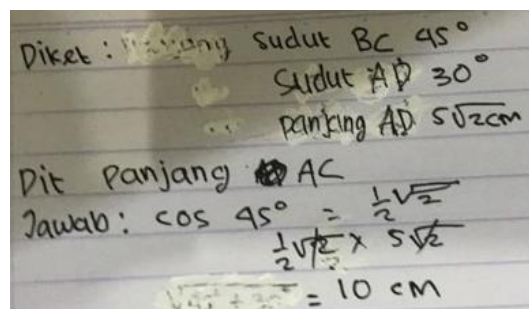 Diket : sudut BC 45°
Sudut AD 30°
panjang AD 5√2cm
Dit panjang AC
Jawab : cos 45° = ½√2
½√2 x 5√2
= 10 cm